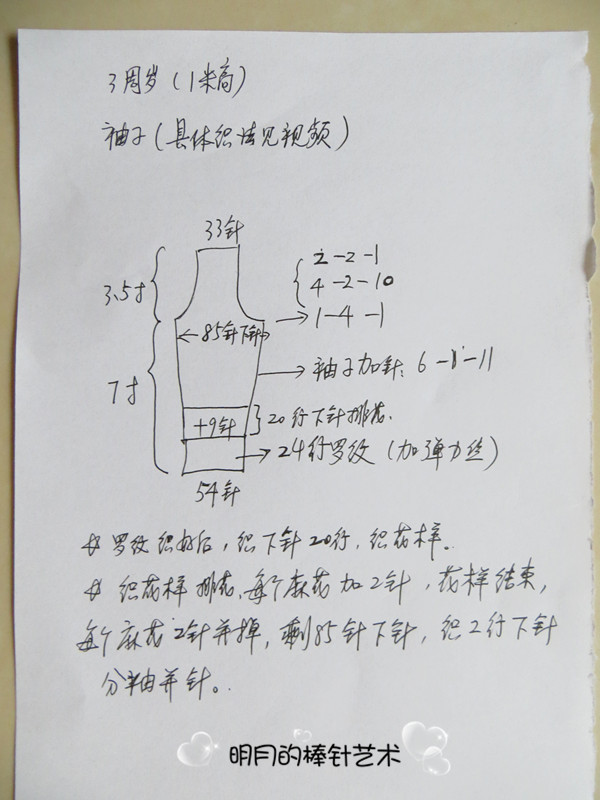 3周岁(1米高)
袖子(具体织法见视频)
33针
3.5寸
2-2-1
4-2-10
1-4-1
85针下针
7寸
袖子加针: 6-1-11
+9针
20行下针排花.
24行罗纹(加弹力丝)
54针
罗纹织好后,织下针20行,织花样。
织花样排花、每个麻花加2针,花样结束,
每个麻花2针并掉,剩85针下针,织2行下针
分袖并针。
明月的棒针艺术